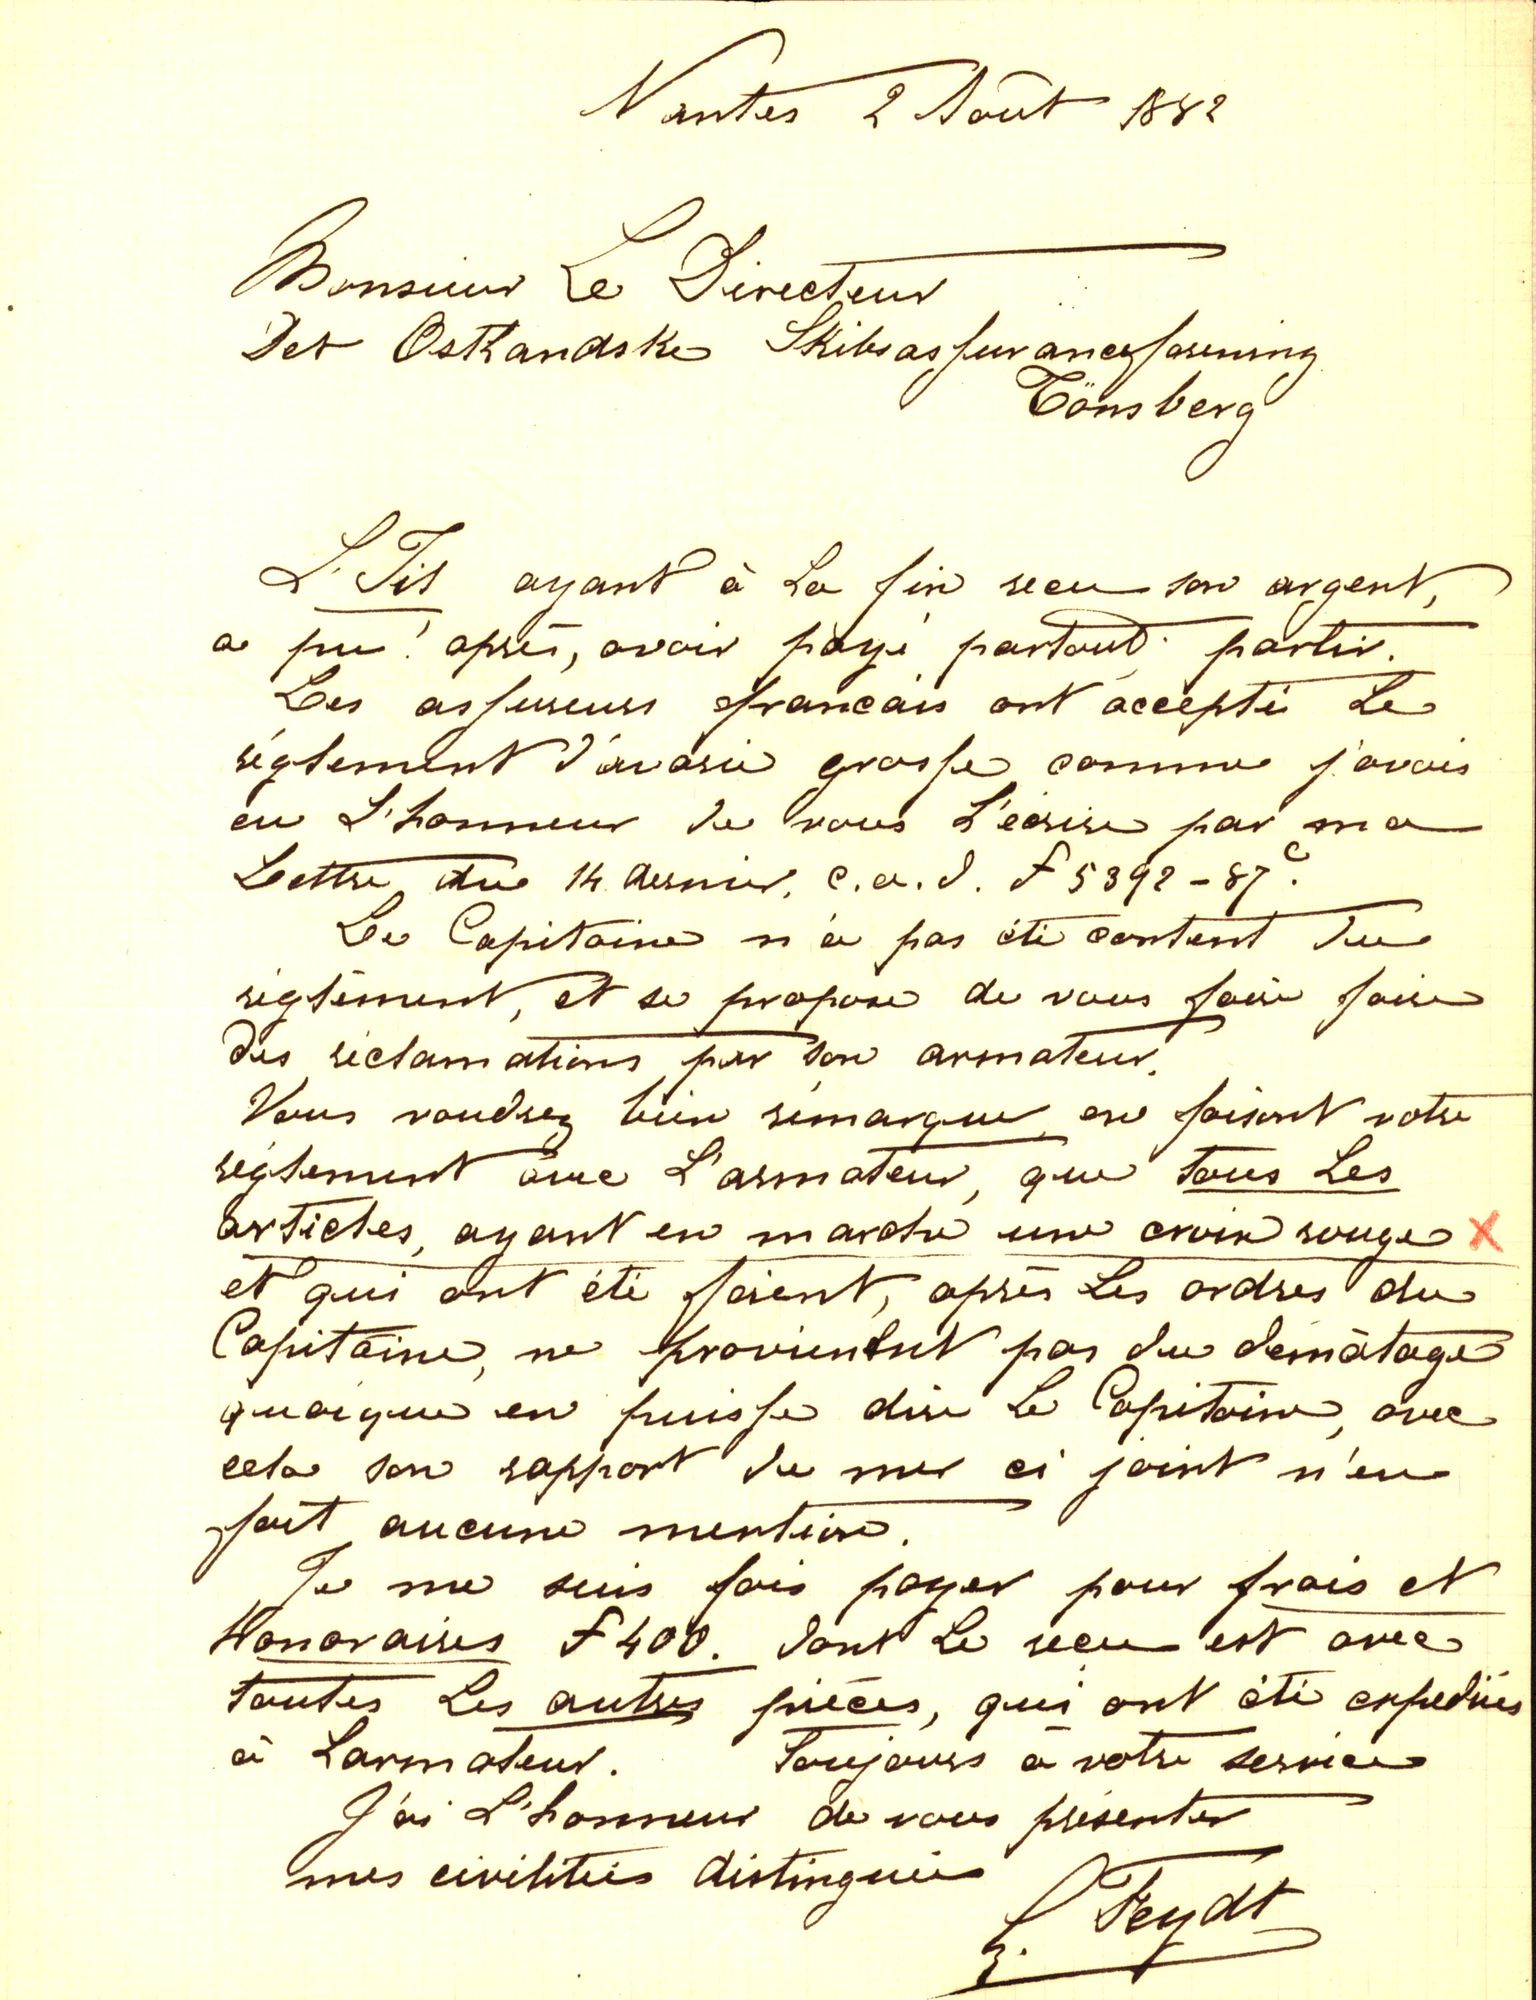 Nantes 2 Août 1882
Monsieur Le Directeur
Det Ostlandske Skibsassuranceforening
Tönsberg
L'Tis ayant à La fin recu son argent,
a pu! après, avoir payé partout partir.
Les assureurs francais ont accepté Le
réglement d'avarie grosse comme j'avais
eu L'honneur de vous L'écrire par ma
Lettre du 14 dernier, c.a.d. F 5392-87c.
Le Capitaine n'a pas été content du
réglément, et se propose de vous faire faire
des réclamations par son armateur.
Vous voudrez bien rémarquer en faisant votre
réglement avec L'armateur, que tous Les
articles, ayant en marche une croix rouge X
et qui ont été faient, après Les ordres du
Capitaine, ne provienent pas du démâtage
quoique en puisse dire Le Capitaine, avec
cela son rapport de mer ci joint n'en
fait aucune mention.
Je me suis fais payer pour frais et
Honoraires F 400. dont Le recu est avec
toutes Les autres pièces, qui ont été expediées
à Larmateur. Toujours à votre service
J'ai L'honneur de vous présenter
mes civilités distinguées
Feydt